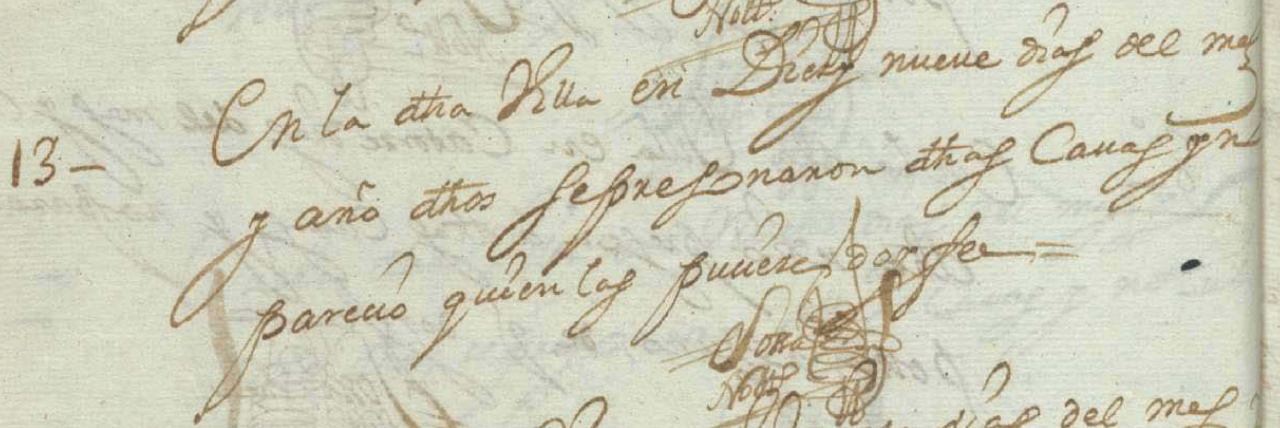 Nott.
13 - En la dha Villa en Diez y nueve dias del mes
y año dhos se pregonaron dhas Casas y no
parecio quien las pusiere doy fee =
Nott.
dias del mes